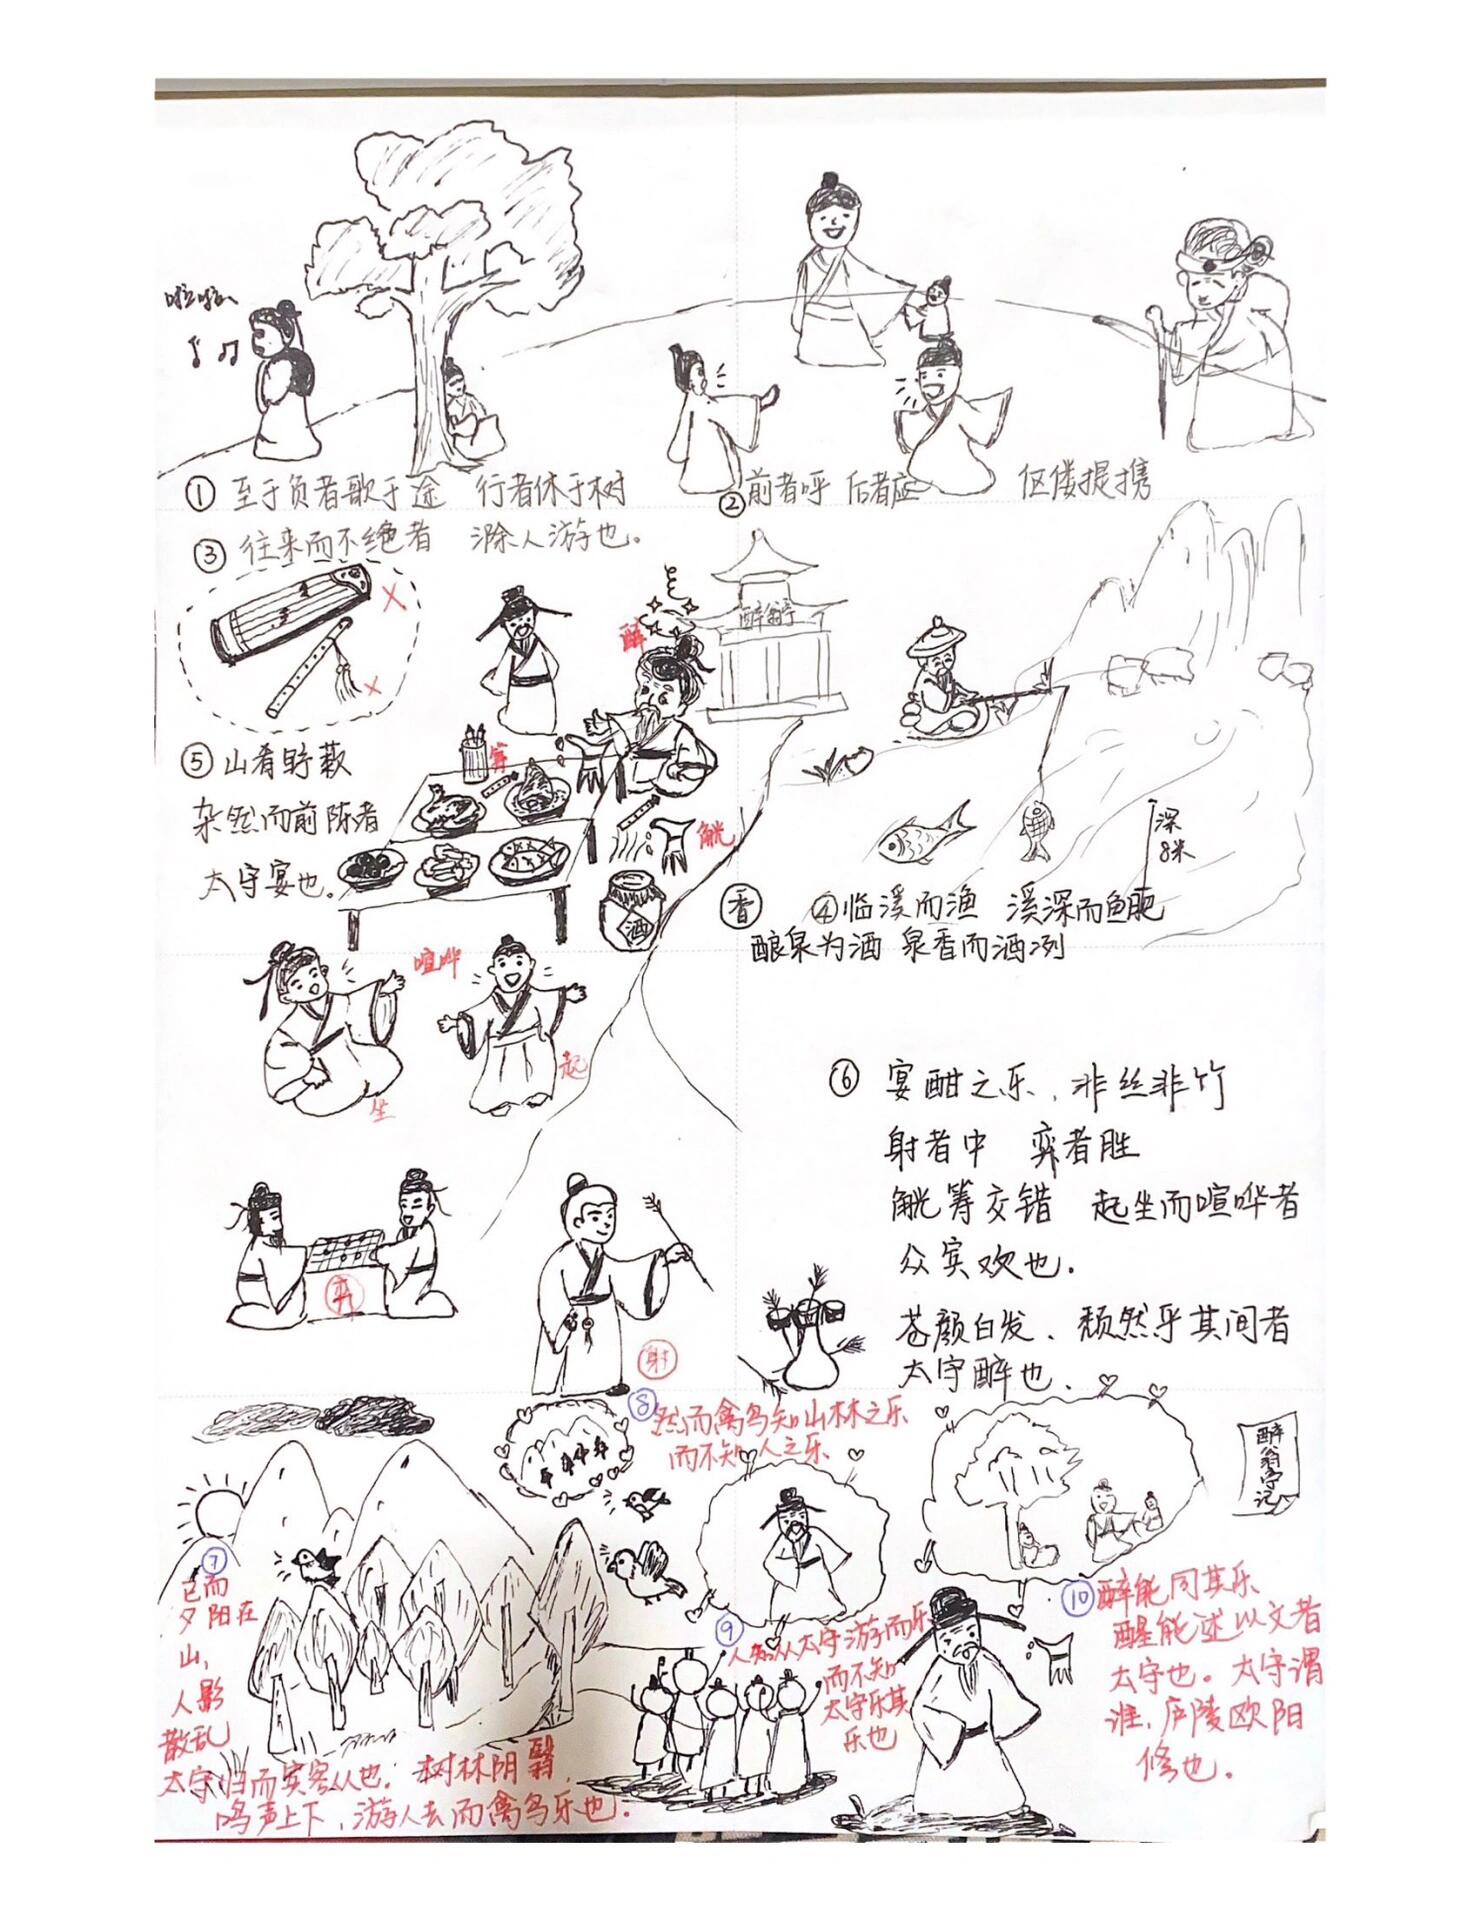 啦啦
① 至于负者歌于途 行者休于树
②前者呼 后者应 伛偻提携
③ 往来而不绝者 滁人游也。
醉翁亭
醉
筹
觥
酒
深
8米
香
④临溪而渔 溪深而鱼肥
酿泉为酒 泉香而酒冽
⑤ 山肴野蔌
杂然而前陈者
太守宴也。
喧哗
坐
起
⑥ 宴酣之乐，非丝非竹
射者中 弈者胜
觥筹交错 起坐而喧哗者
众宾欢也.
苍颜白发、颓然乎其间者
太守醉也.
弈
射
⑦
已而
夕阳在
山，
人影
散乱
太守归而宾客从也. 树林阴翳,
鸣声上下，游人去而禽鸟乐也.
⑧ 然而禽鸟知山林之乐
而不知 人之乐
⑨
人知从太守游而乐
而不知
太守乐其
乐也
醉翁亭记
⑩ 醉能同其乐
醒能述以文者
太守也。太守谓
谁，庐陵欧阳
修也。